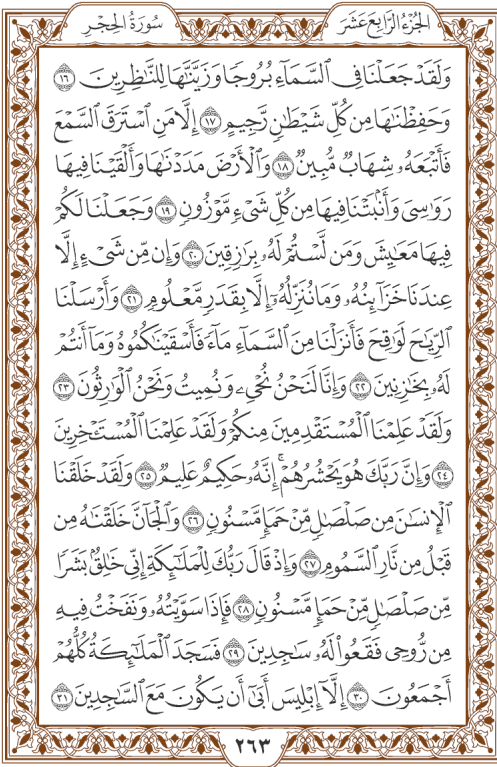 الجُزْءُ الرَّابِعَ عَشَرَ
سُورَةُ الحِجْرِ
وَلَقَدْ جَعَلْنَا فِي السَّمَاءِ بُرُوجًا وَزَيَّنَّاهَا لِلنَّاظِرِينَ ١٦
وَحَفِظْنَاهَا مِن كُلِّ شَيْطَانٍ رَّجِيمٍ ١٧ إِلَّا مَنِ اسْتَرَقَ السَّمْعَ
فَأَتْبَعَهُ شِهَابٌ مُّبِينٌ ١٨ وَالْأَرْضَ مَدَدْنَاهَا وَأَلْقَيْنَا فِيهَا
رَوَاسِيَ وَأَنبَتْنَا فِيهَا مِن كُلِّ شَيْءٍ مَّوْزُونٍ ١٩ وَجَعَلْنَا لَكُمْ
فِيهَا مَعَايِشَ وَمَن لَّسْتُمْ لَهُ بِرَازِقِينَ ٢٠ وَإِن مِّن شَيْءٍ إِلَّا
عِندَنَا خَزَائِنُهُ وَمَا نُنَزِّلُهُ إِلَّا بِقَدَرٍ مَّعْلُومٍ ٢١ وَأَرْسَلْنَا
الرِّيَاحَ لَوَاقِحَ فَأَنزَلْنَا مِنَ السَّمَاءِ مَاءً فَأَسْقَيْنَاكُمُوهُ وَمَا أَنتُمْ
لَهُ بِخَازِنِينَ ٢٢ وَإِنَّا لَنَحْنُ نُحْيِي وَنُمِيتُ وَنَحْنُ الْوَارِثُونَ ٢٣
وَلَقَدْ عَلِمْنَا الْمُسْتَقْدِمِينَ مِنكُمْ وَلَقَدْ عَلِمْنَا الْمُسْتَأْخِرِينَ
٢٤ وَإِنَّ رَبَّكَ هُوَ يَحْشُرُهُمْ ۚ إِنَّهُ حَكِيمٌ عَلِيمٌ ٢٥ وَلَقَدْ خَلَقْنَا
الْإِنسَانَ مِن صَلْصَالٍ مِّنْ حَمَإٍ مَّسْنُونٍ ٢٦ وَالْجَانَّ خَلَقْنَاهُ مِن
قَبْلُ مِن نَّارِ السَّمُومِ ٢٧ وَإِذْ قَالَ رَبُّكَ لِلْمَلَائِكَةِ إِنِّي خَالِقٌ بَشَرًا
مِّن صَلْصَالٍ مِّنْ حَمَإٍ مَّسْنُونٍ ٢٨ فَإِذَا سَوَّيْتُهُ وَنَفَخْتُ فِيهِ
مِن رُّوحِي فَقَعُوا لَهُ سَاجِدِينَ ٢٩ فَسَجَدَ الْمَلَائِكَةُ كُلُّهُمْ
أَجْمَعُونَ ٣٠ إِلَّا إِبْلِيسَ أَبَىٰ أَن يَكُونَ مَعَ السَّاجِدِينَ ٣١
٢٦٣